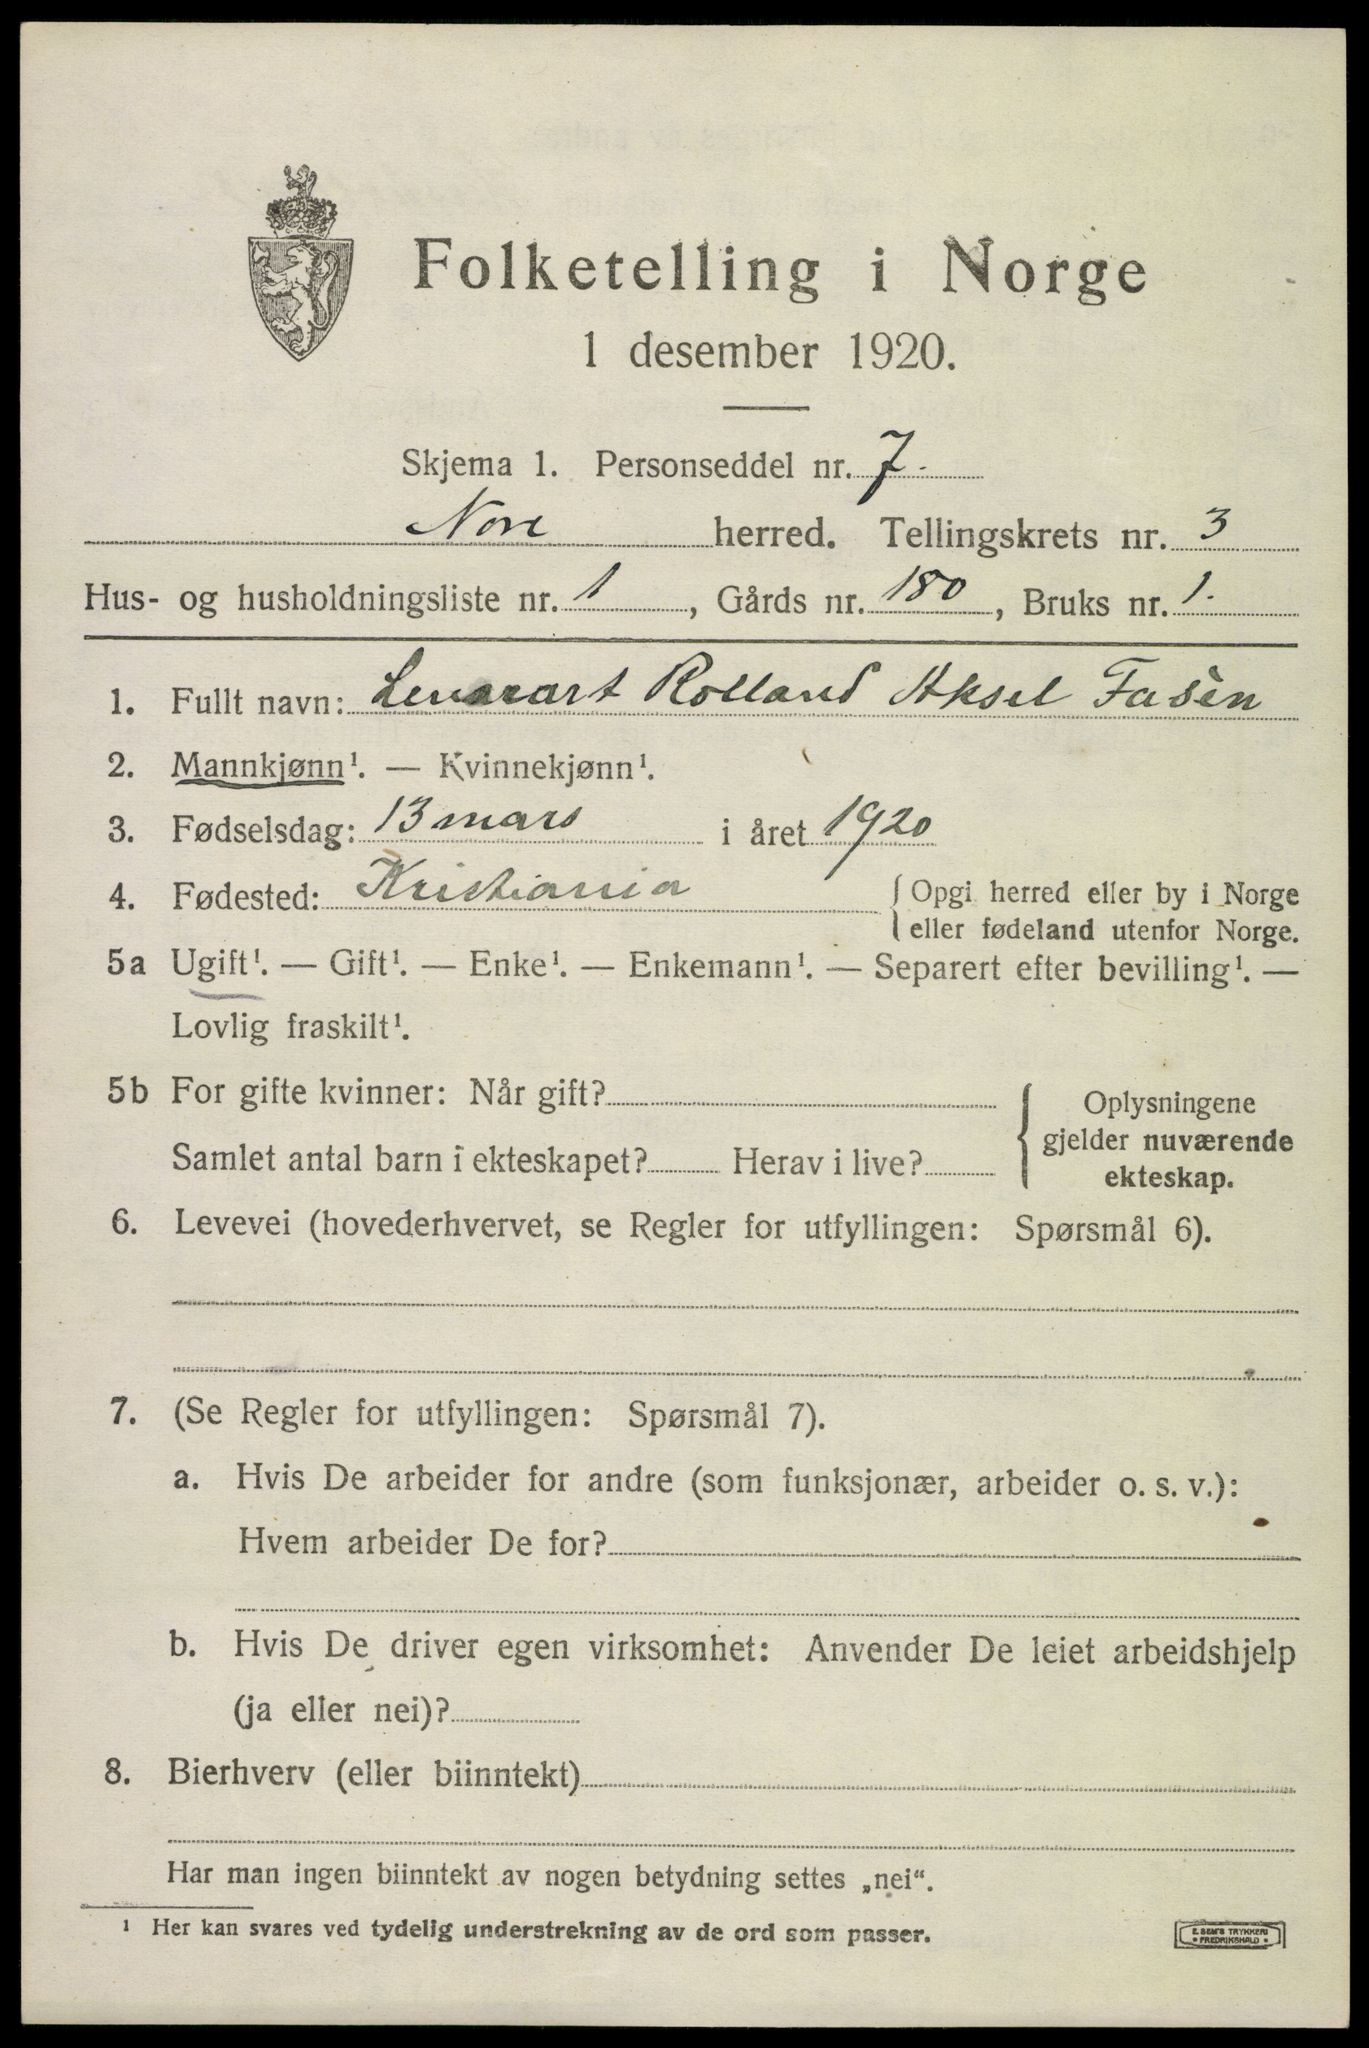 Folketelling i Norge
1 desember 1920.
Skjema 1. Personseddel nr. 7.
Nore herred. Tellingskrets nr. 3
Hus- og husholdningsliste nr. 1, Gårds nr. 180, Bruks nr. 1.
1. Fullt navn: Rolland Aksel Fasèn
2. Mannkjønn¹. — Kvinnekjønn¹.
3. Fødselsdag: 13 mars i året 1920
4. Fødested: Kristiania { Opgi herred eller by i Norge
eller fødeland utenfor Norge.
5a Ugift¹. — Gift¹. — Enke¹. — Enkemann¹. — Separert efter bevilling¹. —
Lovlig fraskilt¹.
5b For gifte kvinner: Når gift?
Samlet antal barn i ekteskapet? Herav i live?
{ Oplysningene
gjelder nuværende
ekteskap.
6. Levevei (hovederhvervet, se Regler for utfyllingen: Spørsmål 6).
7. (Se Regler for utfyllingen: Spørsmål 7).
a. Hvis De arbeider for andre (som funksjonær, arbeider o. s. v.):
Hvem arbeider De for?
b. Hvis De driver egen virksomhet: Anvender De leiet arbeidshjelp
(ja eller nei)?
8. Bierhverv (eller biinntekt)
Har man ingen biinntekt av nogen betydning settes „nei“.
¹ Her kan svares ved tydelig understrekning av de ord som passer.
E. SEM'S TRYKKERI
• FREDRIKSHALD •